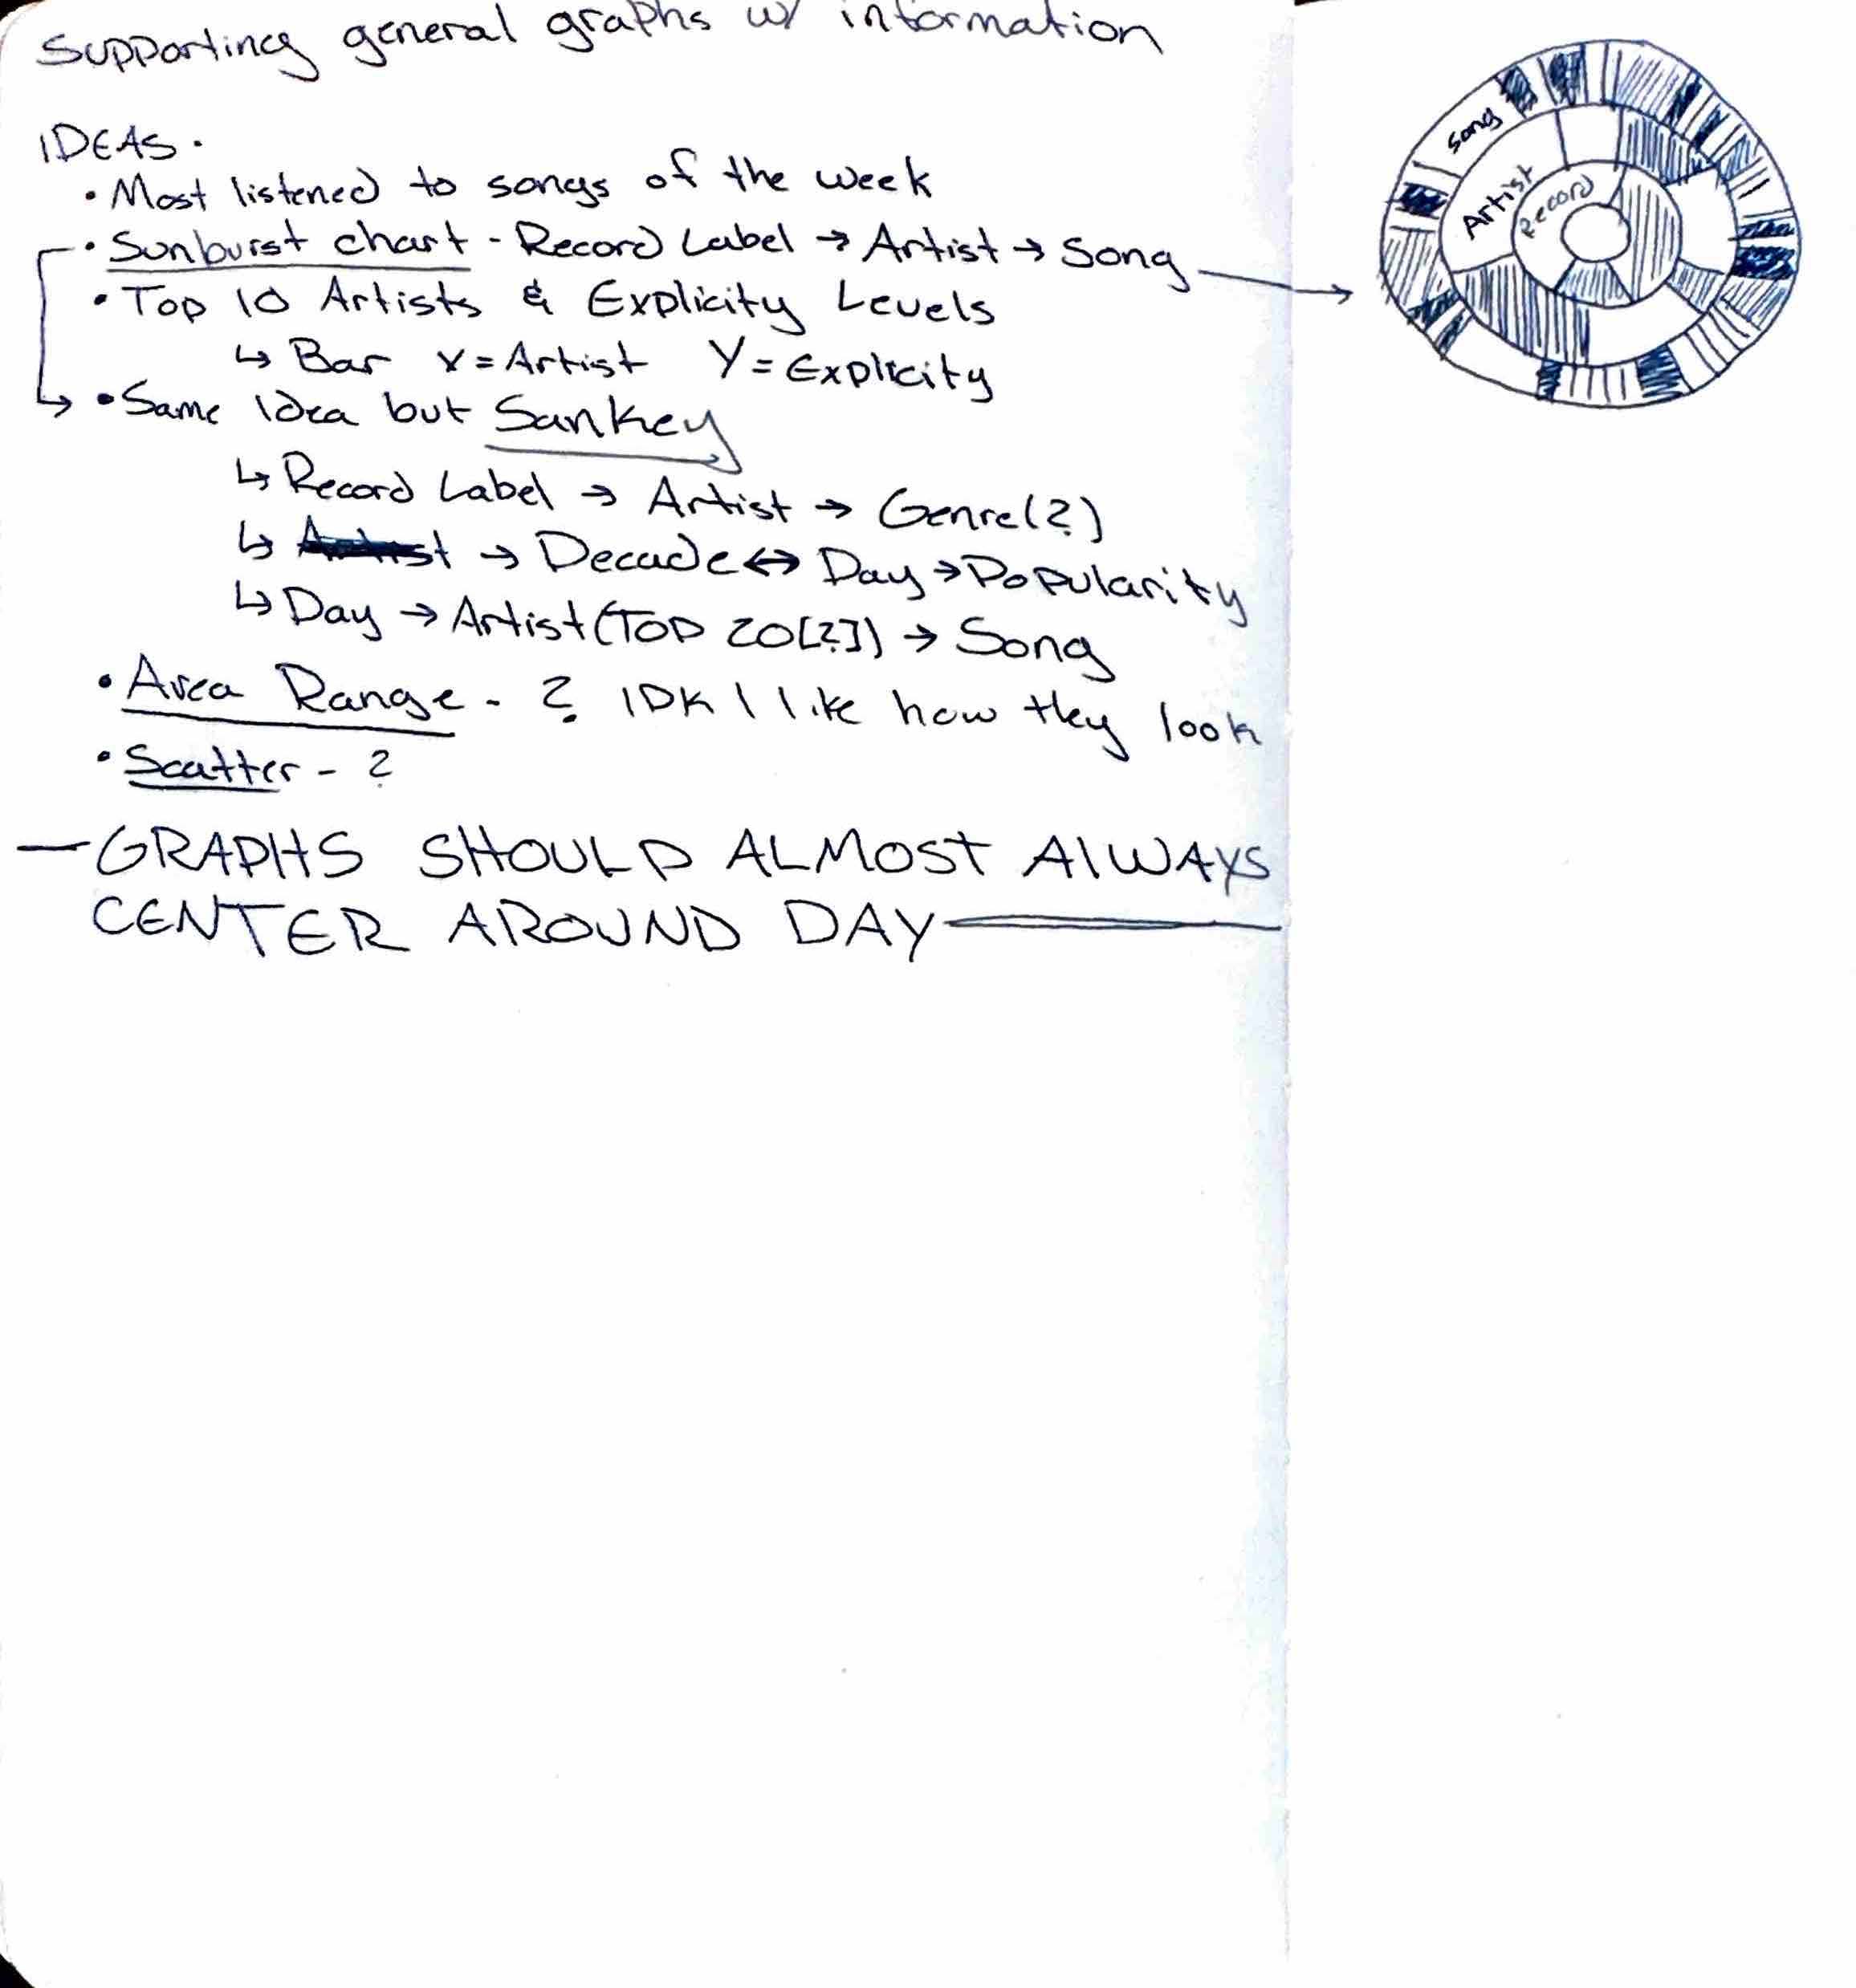 Supporting general graphs w/ information
IDEAS.
• Most listened to songs of the week
• Sunburst chart - Record Label → Artist → Song
• Top 10 Artists & Explicity Levels
↳ Bar x = Artist Y = Explicity
• Same idea but Sankey
↳ Record Label → Artist → Genre(?)
↳ Artist → Decade ↔ Day → Popularity
↳ Day → Artist (TOP 20[?]) → Song
• Area Range - ? IDK I like how they look
• Scatter - ?
— GRAPHS SHOULD ALMOST AlWAYS
CENTER AROUND DAY —
Song
Artist
Record